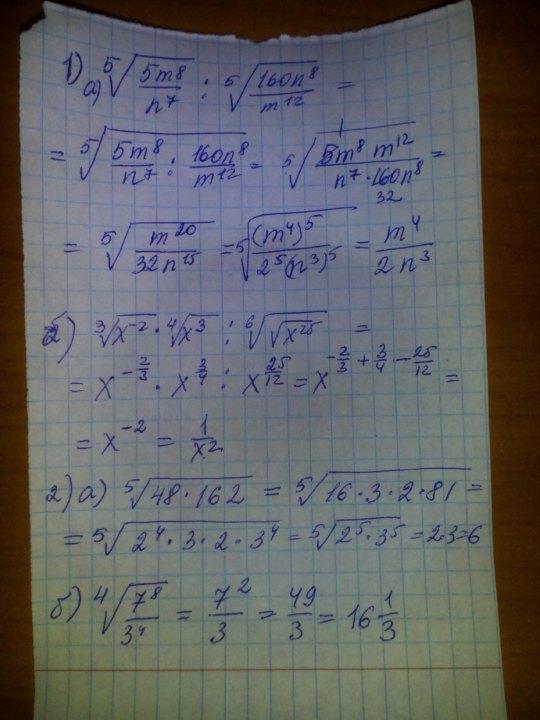 1) а) ⁵√(5m⁸/n⁷) : ⁵√(160n⁸/m¹²) =
= ⁵√(5m⁸/n⁷ : 160n⁸/m¹²) = ⁵√(5m⁸ m¹²/n⁷·160n⁸) =
1
32
= ⁵√(m²⁰/32n¹⁵) = ⁵√((m⁴)⁵/2⁵(n³)⁵) = m⁴/2n³
б) ³√x⁻² · ⁴√x³ : ⁶√√x²⁵ =
= x^(-2/3) · x^(3/4) : x^(25/12) = x^(-2/3 + 3/4 - 25/12) =
= x⁻² = 1/x²
2) а) ⁵√48·162 = ⁵√16·3·2·81 =
= ⁵√2⁴·3·2·3⁴ = ⁵√2⁵·3⁵ = 2·3=6
б) ⁴√(7⁸/3⁴) = 7²/3 = 49/3 = 16 1/3